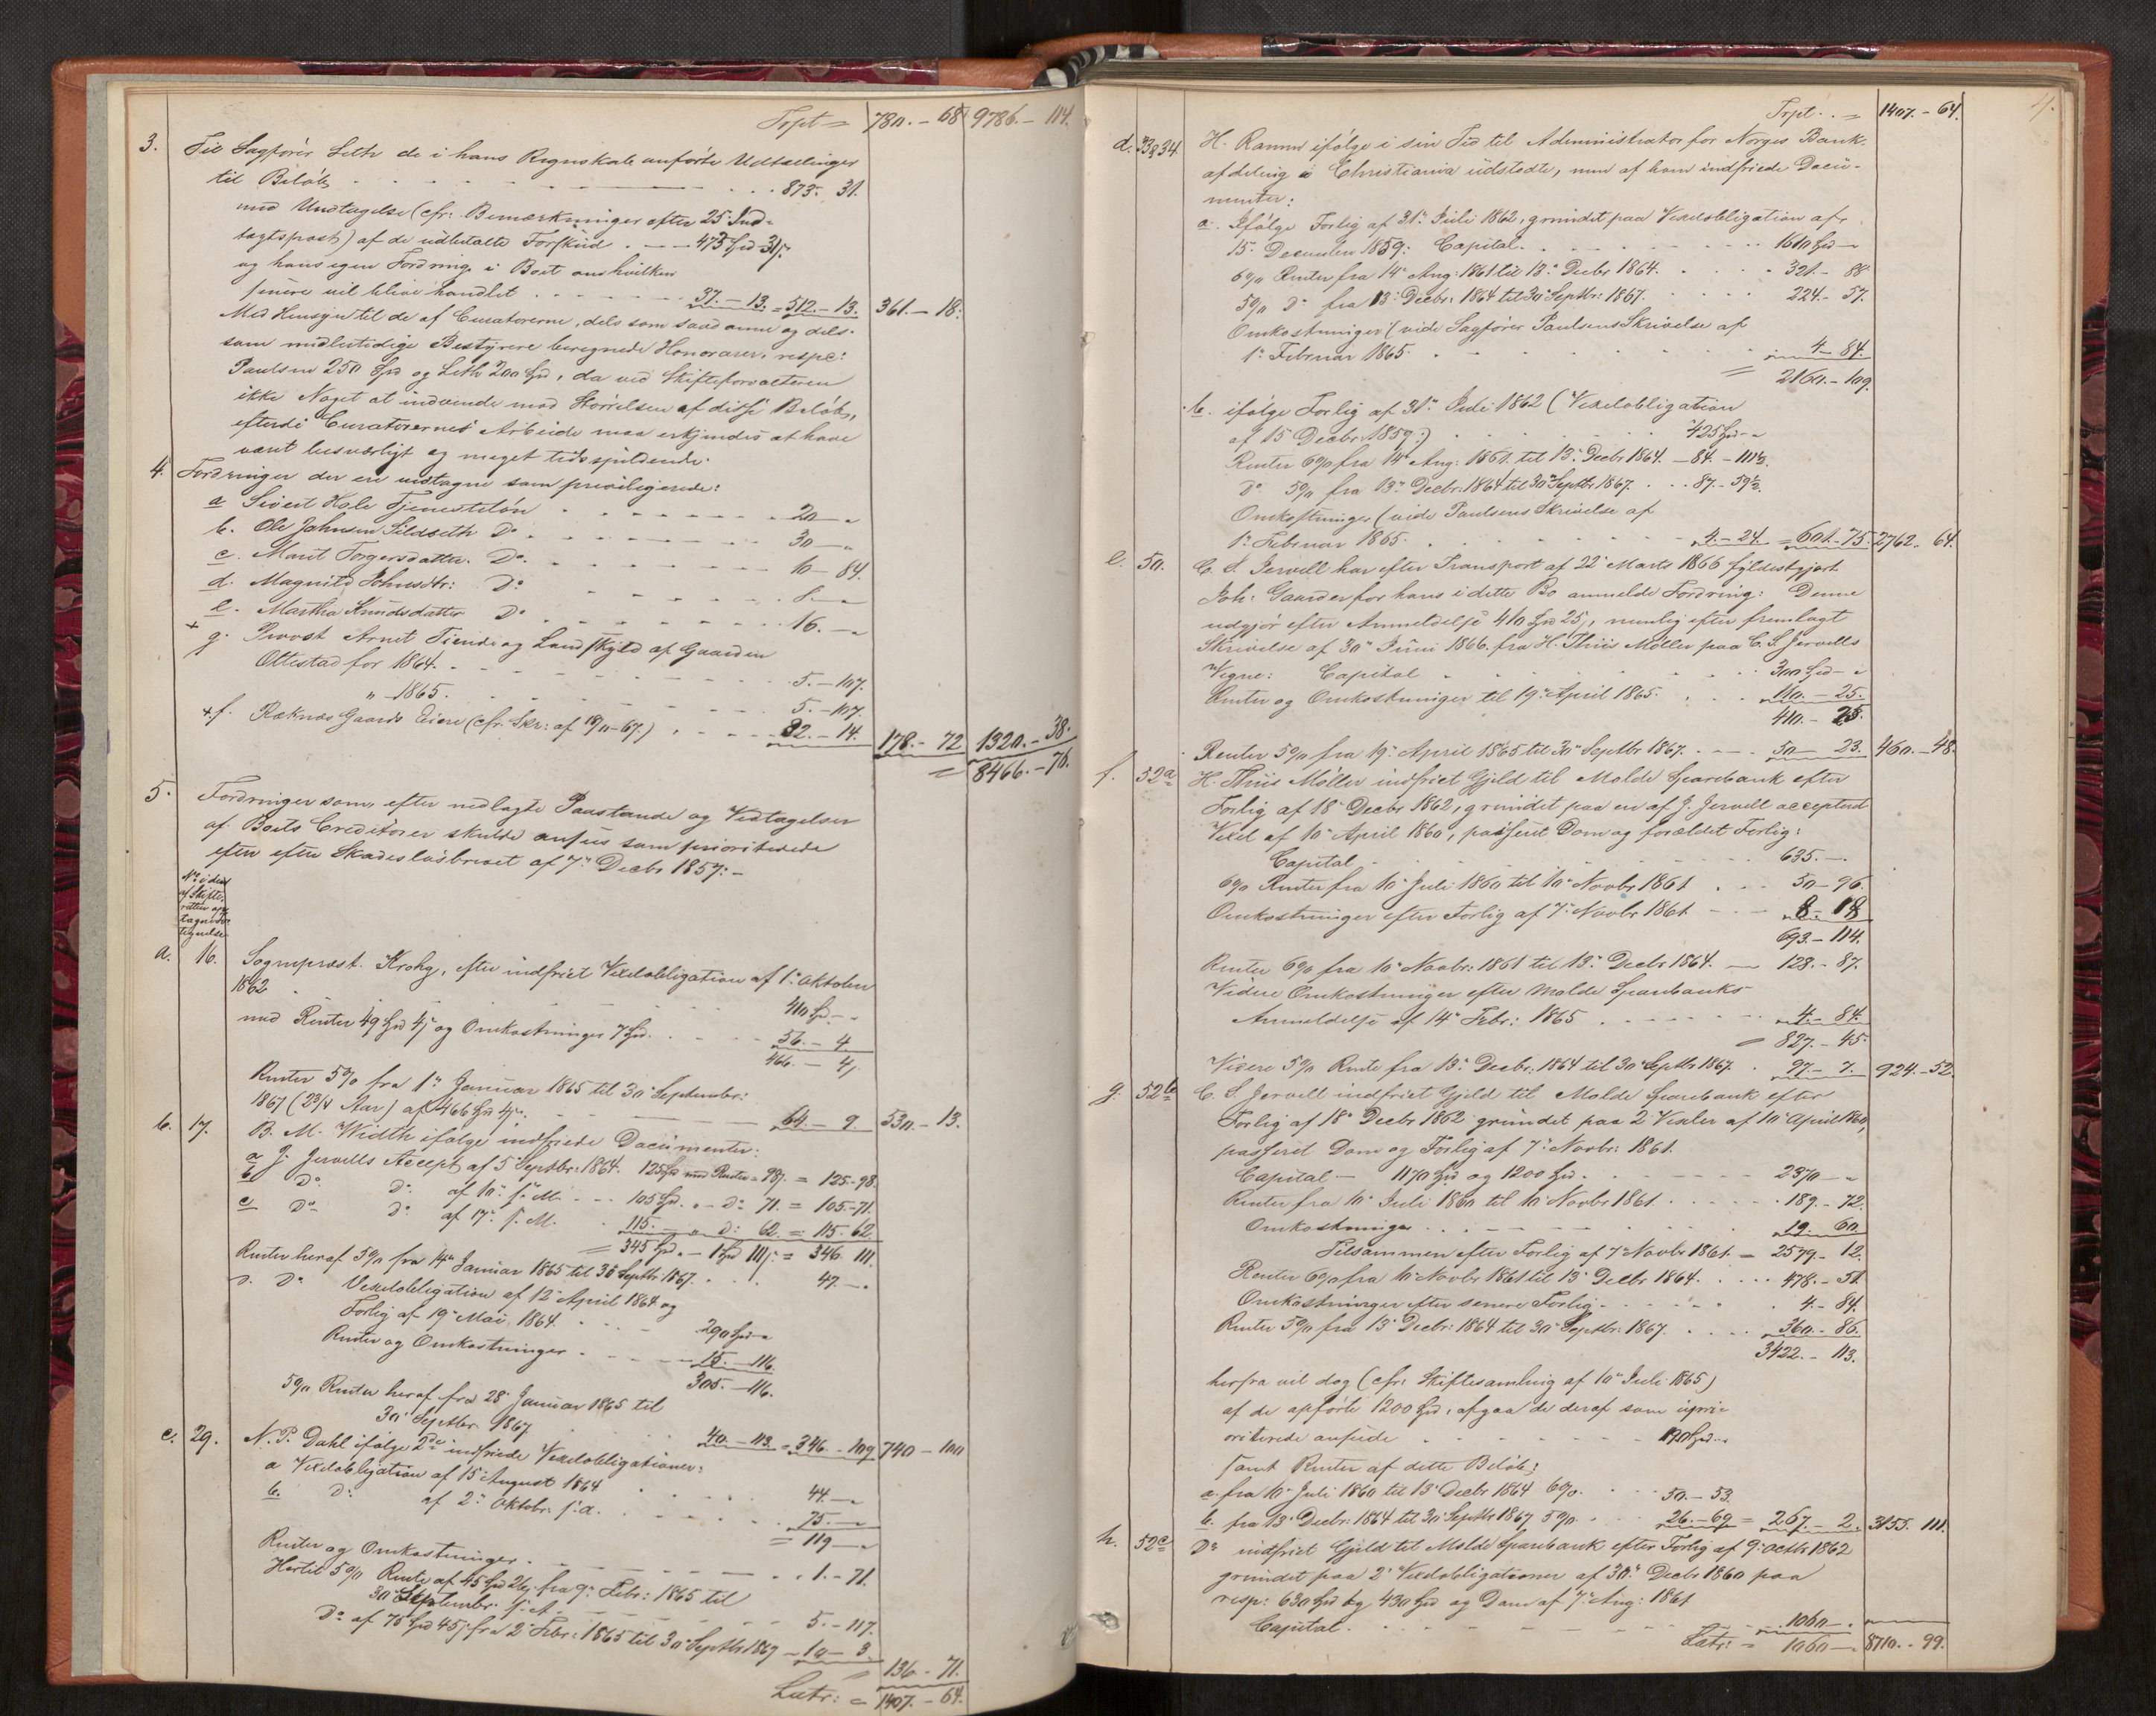 Trpt = 780. - 68 9786. - 114.
3. Til Sagfører Leth de i hans Regnskab anførte Udtællinger
til Beløb 873. 31.
med Undtagelse (cfr: Bemærkninger efter 25 Ind-
tægtspost) af de udbetalte Forskud . - - 475 Spd 31 s.
og hans egen Fordring i Boet om hvilken
senere vil blive handlet 37. - 13. = 512. - 13. 361. - 18.
Med Hensyn til de af Curatorerne, dels som saadanne og dels
som midlertidige Bestyrere beregnede Honorarer, respc:
Paulsen 250 Spd og Leth 200 Spd, da ved Skifteforvalteren
ikke Noget at indvende mod Størrelsen af disse Beløb,
efterdi Curatorernes Arbeide maa erkjendes at have
været besværligt og meget tidsspildende.
4. Fordringer der ere vedtagne som privilegerede:
a Sivert Hole Tjenesteløn 20 - "
b. Ole Johnsen Sildseth Do 30 - "
c. Marit Torgersdatter Do. 10 - 84.
d. Magnild Johnsdtr: Do 8 - "
e. Martha Knudsdatter Do 16. - "
+ g. Provst Arnet Tiende og Landskyld af Gaarden
Oltestad for 1864. 5. - 107.
" - 1865. 5. - 107.
+ f. Ræknæs Gaards Eiere (cfr. Skr: af 18/11-67.) 82. - 14. 178. - 72 1320. - 38.
= 8466. - 76.
5. Fordringer som, efter nedlagte Paastande og Vedtagelser
af Boets Creditorer skulde ansees som prioriterede
efter efter Skadesløsbrevet af 7de Decbr 1857: -
No i den
af Skifte-
retten op-
tagne For-
tegnelse
a. 16. Sogneprest Krohg, efter indfriet Vexelobligation af 1. Oktober
1862 410 Spd - "
med Renter 49 Spd 4 s og Omkostninger 7 Spd. 56. - 4.
466. - 4.
Renter 5 % fra 1ste Januar 1865 til 30 September
1867 (2 3/4 Aar) af 466 Spd 4 s. 64. - 9. 530. - 13.
b. 17. B. M. Width ifølge indfriede Documenter:
a J. Jervells Accept af 5 Septbr: 1864. 125 Spd med Renter 98 s. = 125. - 98.
b Do Do af 10. s. M. - - - 105 Spd. " - Do 71. = 105. - 71.
c Do Do af 17. s. M. 115. - " Do 62. = 115. 62.
= 345 Spd. - 1 Spd 111 s. = 346. 111.
Renter heraf 5 % fra 14de Januar 1865 til 30 Septbr 1867. 47. - "
Do Vexelobligation af 12 April 1864 og
Forlig af 19 Mai 1864. 290 Spd - "
Renter og Omkostninger 15. - 116.
305. - 116.
5 % Renter heraf fra 28 Januar 1865 til
30 Septbr 1867 40. - 113. = 346. - 109 740 - 100
c. 29. N. P. Dahl ifølge 2de indfriede Vexelobligationer:
a Vexelobligation af 15 August 1864 44. - "
b. Do af 2. Oktobr. s. a. 75. - "
= 119 - "
Renter og Omkostninger 1. - 71.
Hertil 5 % Rente af 45 Spd 26 s fra 9. Febr: 1865 til
30 Septembr. s. A. 5. - 117.
Do af 75 Spd 45 s fra 2 Febr: 1865 til 30 Septbr 1867 - 10 - 3.
136 - 71.
Latr: = 1407. - 64.
4.
Trpt. = 1407. - 64.
d. 33 & 34. H. Ramm ifølge i sin Tid til Administrator for Norges Bank-
afdeling i Christiania udstedte, nun af ham indfriede Docu-
menter:
a. Ifølge Forlig af 31te Juli 1862, grundet paa Vexelobligation af
15. December 1859: Capital. 1610 Spd - "
6 % Renter fra 14 Aug: 1861 til 13. Decbr 1864. 321. - 88
5 % Do fra 13. Decbr: 1864 til 30 Septbr: 1867. 224. - 57.
Omkostninger (vide Sagfører Paulsens Skrivelse af
1. Februar 1865. 4 - 84.
= 2160. - 109.
b. ifølge Forlig af 31te Juli 1862 (Vexelobligation
af 15 Decbr 1859:) 425 Spd - "
Renter 6 % fra 14 Aug: 1861 til 13. Decbr 1864. - 84. - 111 1/2.
Do 5 % fra 13. Decbr: 1864 til 30 Septbr 1867. 87. - 59 1/2.
Omkostninger (vide Paulsens Skrivelse af
1. Februar 1865. 4. - 24. = 601. - 75. 2762. 64.
e. 50. C. S. Jervell har efter Transport af 22 Marts 1866 fyldestgjort
Joh: Gaarder for hans i dette Bo anmeldte Fordring: Denne
udgjør efter Anmeldelse 410 Spd 25 s, nemlig efter fremlagt
Skrivelse af 30 Juni 1866. fra H. Thiis Møller paa C. S. Jervells
Vegne: Capital 300 Spd - "
Renter og Omkostninger til 19. April 1865. 110. - 25.
410. - 25.
Renter 5 % fra 19. April 1865 til 30 Septbr 1867. 50 - 23. 460. - 48.
f. 52a H. Thiis Møller indfriet Gjeld til Molde Sparebank efter
Forlig af 18 Decbr 1862, grundet paa en af J. Jervell accepteret
Vexel af 10 April 1860, passeret Dom og forældet Forlig:
Capital 635. - "
6 % Renter fra 10 Juli 1860 til 10 Novbr 1861 50 - 96.
Omkostninger efter Forlig af 7. Novbr 1861 - - - 8 - 18
693. - 114.
Renter 6 % fra 10 Novbr: 1861 til 13. Decbr 1864. - 128. - 87.
Videre Omkostninger efter Molde Sparebanks
Anmeldelse af 14 Febr: 1865 4. - 84.
= 827. - 45.
Videre 5 % Rente fra 13. Decbr: 1864 til 30 Septbr 1867. 97. - 7. 924. - 52.
g. 52b C. S. Jervell indfriet Gjeld til Molde Sparebank efter
Forlig af 18 Decbr 1862 grundet paa 2 Vexler af 10 April 1860,
passeret Dom og Forlig af 7. Novbr: 1861.
Capital - 1170 Spd og 1200 Spd. 2370 - "
Renter fra 10 Juli 1860 til 10 Novbr 1861. 189. - 72.
Omkostninger 19. 60.
Tilsammen efter Forlig af 7 Novbr 1861. = 2579. - 12.
Renter 6 % fra 10 Novbr 1861 til 13 Decbr 1864. 478. - 51.
Omkostninger efter senere Forlig 4. - 84.
Renter 5 % fra 13 Decbr: 1864 til 30 Septbr: 1867. 360. - 86.
3422. - 113.
herfra vil dog (cfr: Skiftesamling af 10 Juli 1865)
af de opførte 1200 Spd, afgaa de deraf som upri-
oriterede anseede 190 Spd - "
samt Renter af dette Beløb:
a fra 10 Juli 1860 til 13 Decbr 1864 6 %. 50. - 53.
b. fra 13 Decbr: 1864 til 30 Septbr 1867 5 %. 26. - 69 = 267. - 2. 3155. 111.
h. 52c Do indfriet Gjeld til Molde Sparebank efter Forlig af 9. Octbr 1862
grundet paa 2 Vexelobligationer af 30. Decbr 1860 paa
resp: 630 Spd og 430 Spd og Dom af 7. Aug: 1861
Capital 1060 - "
Latr: = 1060 - " 8710. - 99.